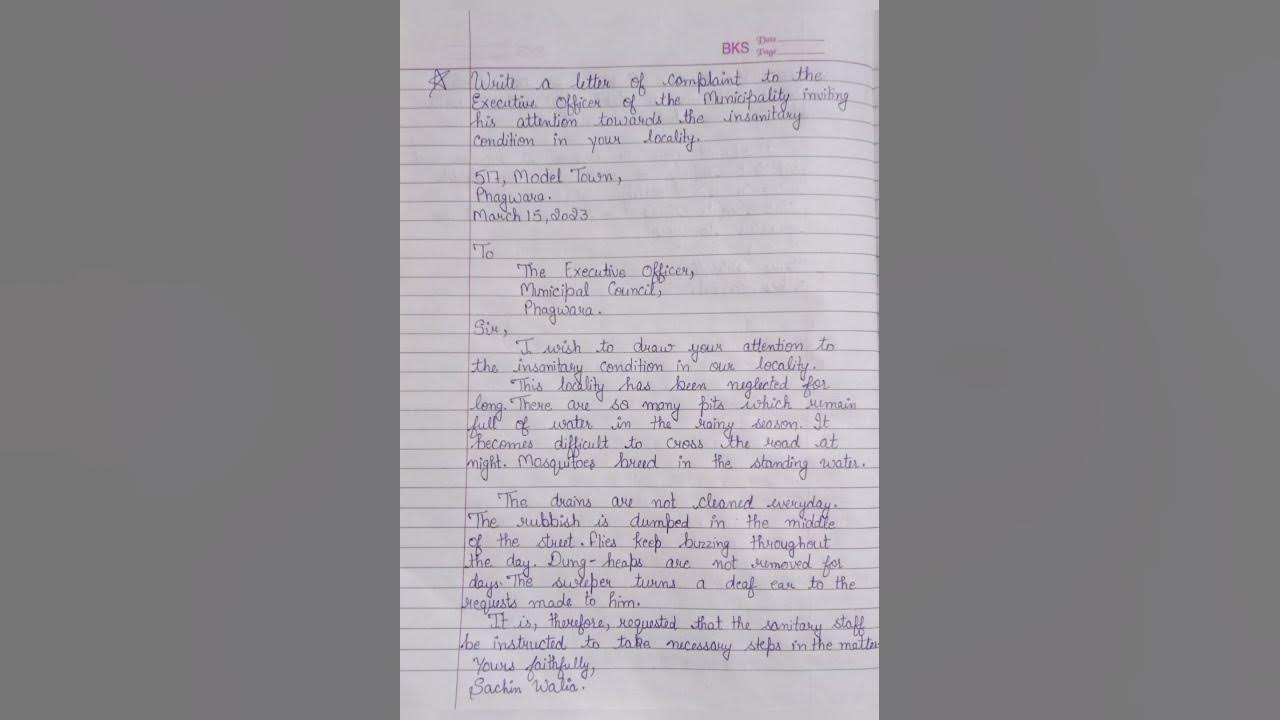 BKS Date
Page
☆ Write a letter of complaint to the
Executive Officer of the Municipality inviting
his attention towards the insanitary
condition in your locality.
517, Model Town,
Phagwara.
March 15, 2023
To
The Executive Officer,
Municipal Council,
Phagwara.
Sir,
I wish to draw your attention to
the insanitary condition in our locality.
This locality has been neglected for
long. There are so many pits which remain
full of water in the rainy season. It
becomes difficult to cross the road at
night. Mosquitoes breed in the standing water.
The drains are not cleaned everyday.
The rubbish is dumped in the middle
of the street. Flies keep buzzing throughout
the day. Dung-heaps are not removed for
days. The sweeper turns a deaf ear to the
requests made to him.
It is, therefore, requested that the sanitary staff
be instructed to take necessary steps in the matter
Yours faithfully,
Sachin Walia.